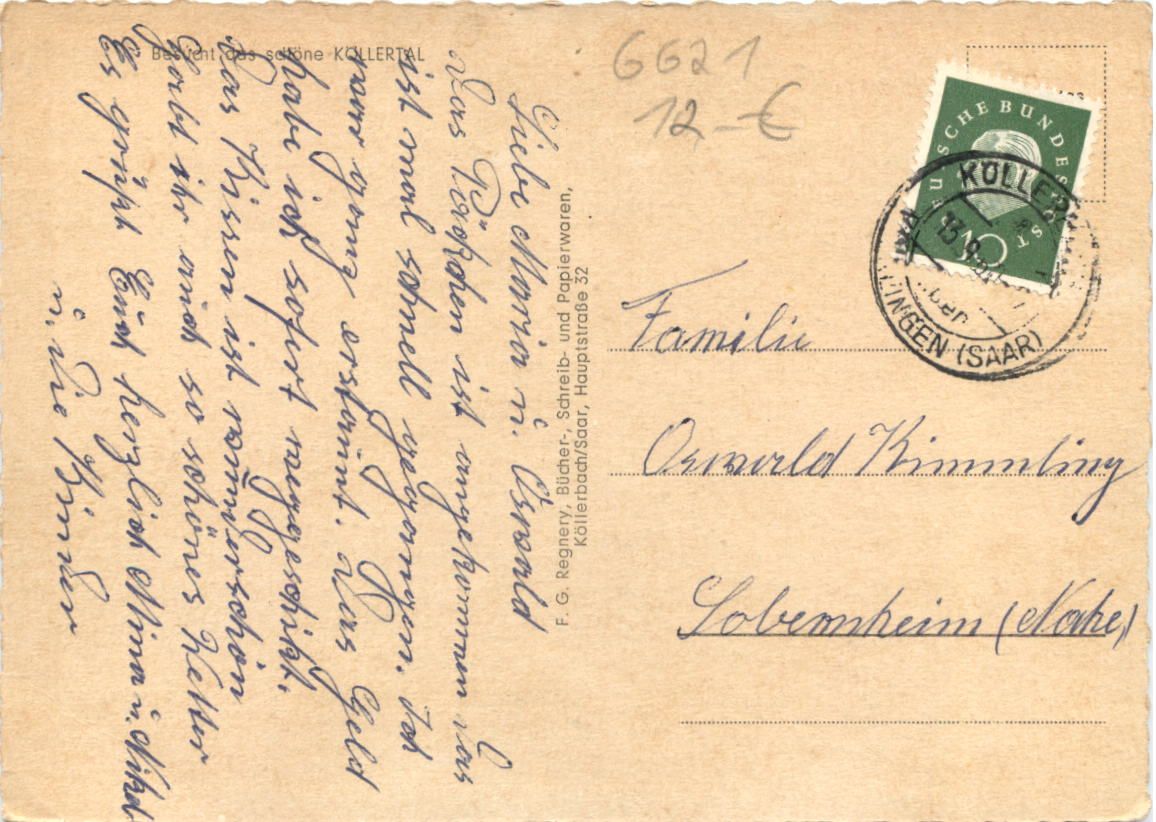 Besucht das schöne KÖLLERTAL
Liebe Maria u. Oswald
Das Päckchen ist angekommen das
ist mal schnell gegangen. Ich
war ganz erstaunt. Das Geld
habe ich sofort
Das Kissen ist wunderschön
Habt ihr auch so schönes Wetter
Es grüßt Euch herzlich Mina u.
u. die Kinder
F. G. Regnery, Bücher-, Schreib- und Papierwaren,
Köllerbach/Saar, Hauptstraße 32
6621
12,-€
DEUTSCHE BUNDESPOST
10
LINGEN (SAAR)
Familie
Oswald Kimmling
Sobernheim (Nahe)